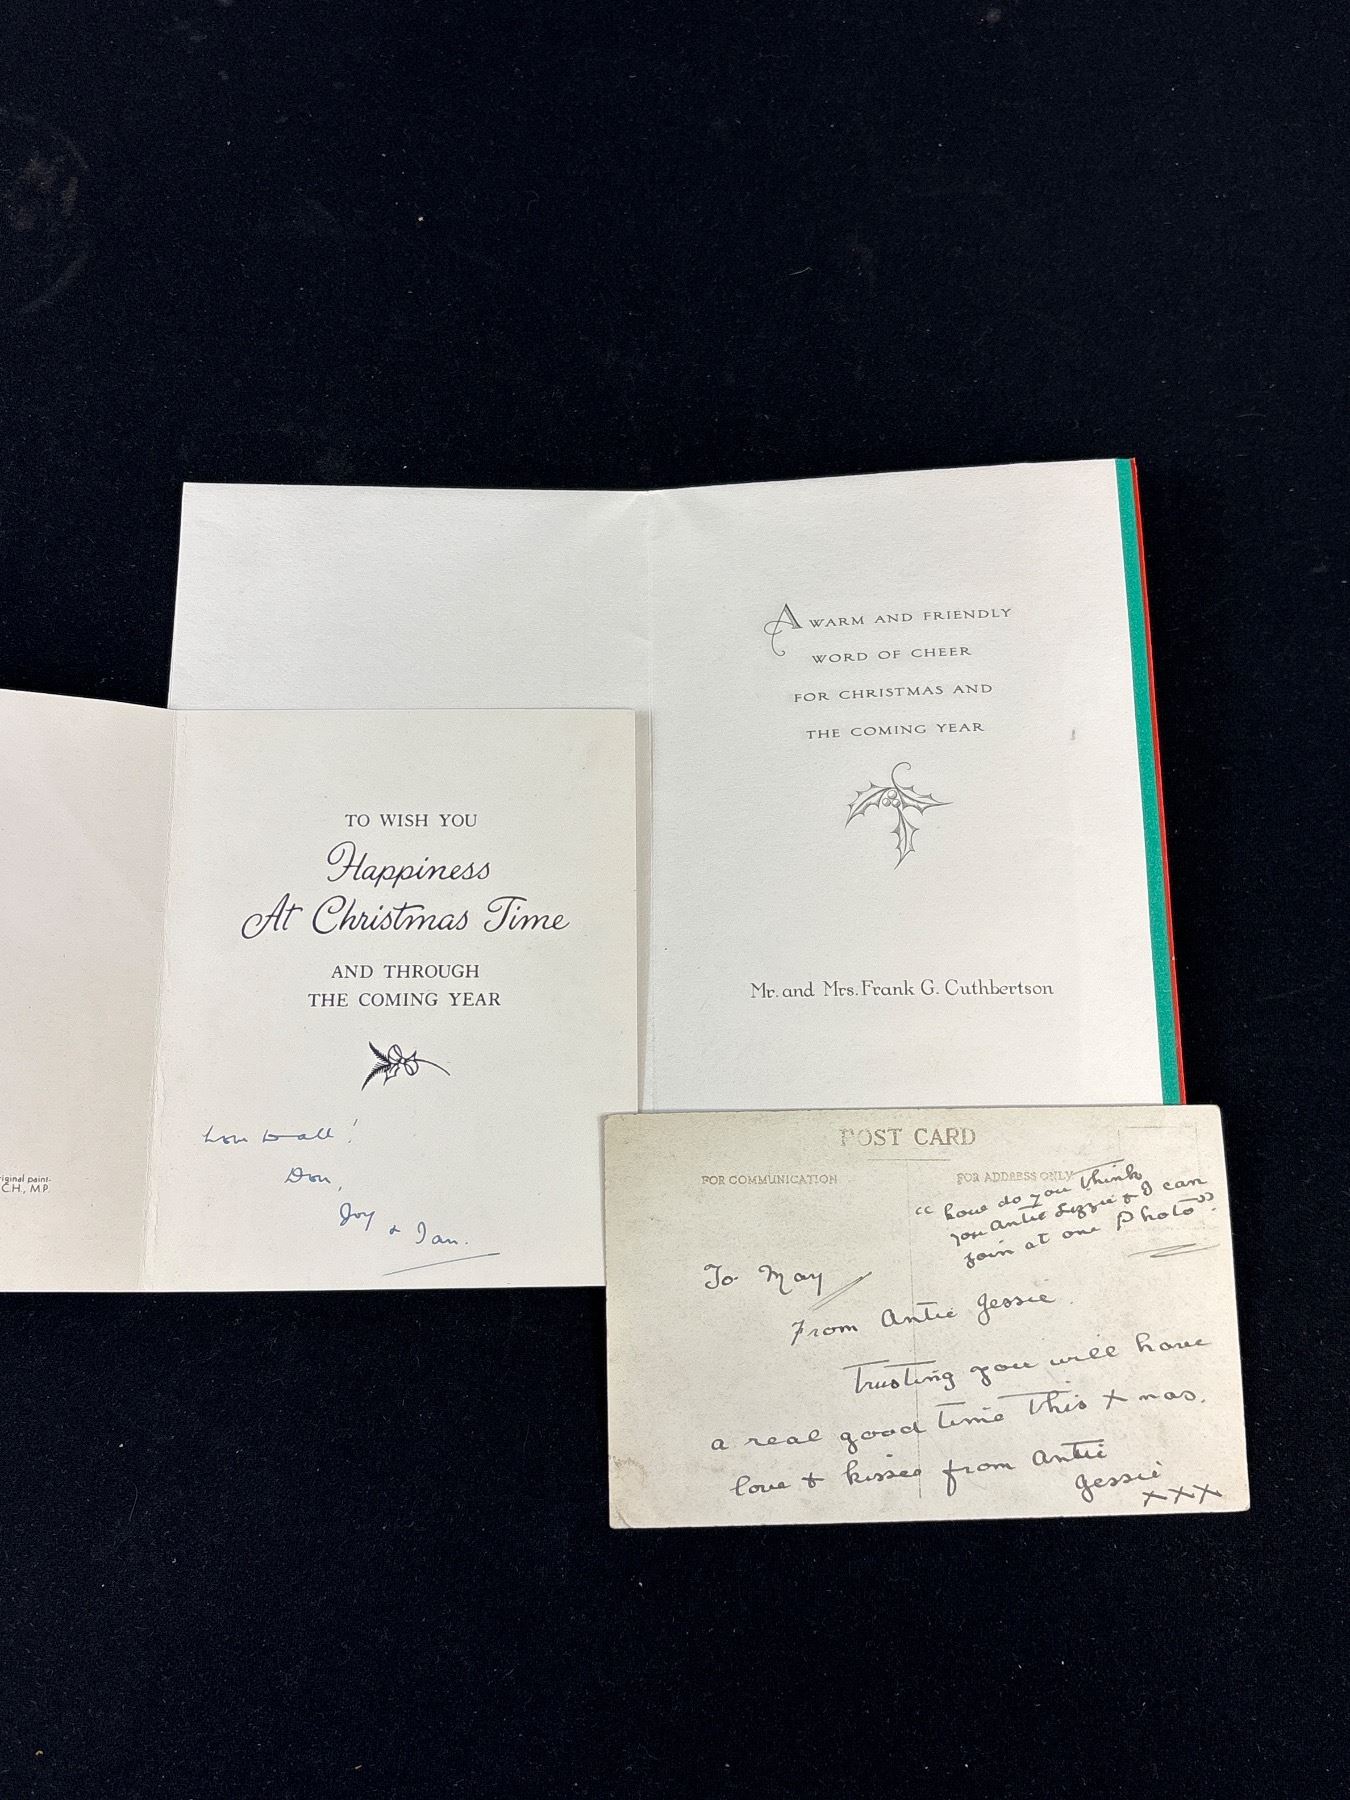 A WARM AND FRIENDLY
WORD OF CHEER
FOR CHRISTMAS AND
THE COMING YEAR
Mr. and Mrs. Frank G. Cuthbertson
TO WISH YOU
Happiness
At Christmas Time
AND THROUGH
THE COMING YEAR
Love to all!
Don,
Joy
& Ian.
riginal paint-
CH., M.P.
POST CARD
FOR COMMUNICATION
FOR ADDRESS ONLY
"how do you think
you Antie Lizzie & I can
join at one Photo".
To May
From Antie Jessie.
Trusting you will have
a real good time this Xmas.
love & kisses from Antie
Jessie
XXX